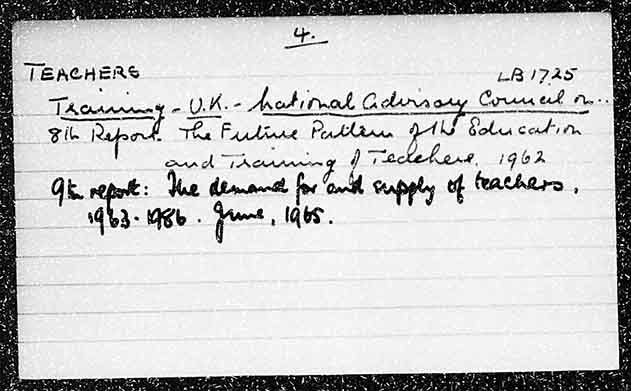 4.
TEACHERS LB 1725
Training - U.K. - National Advisory Council on..
8th Report. The Future Pattern of the Education
and Training of Teachers. 1962
9th report: The demand for and supply of teachers,
1963-1986. June, 1965.